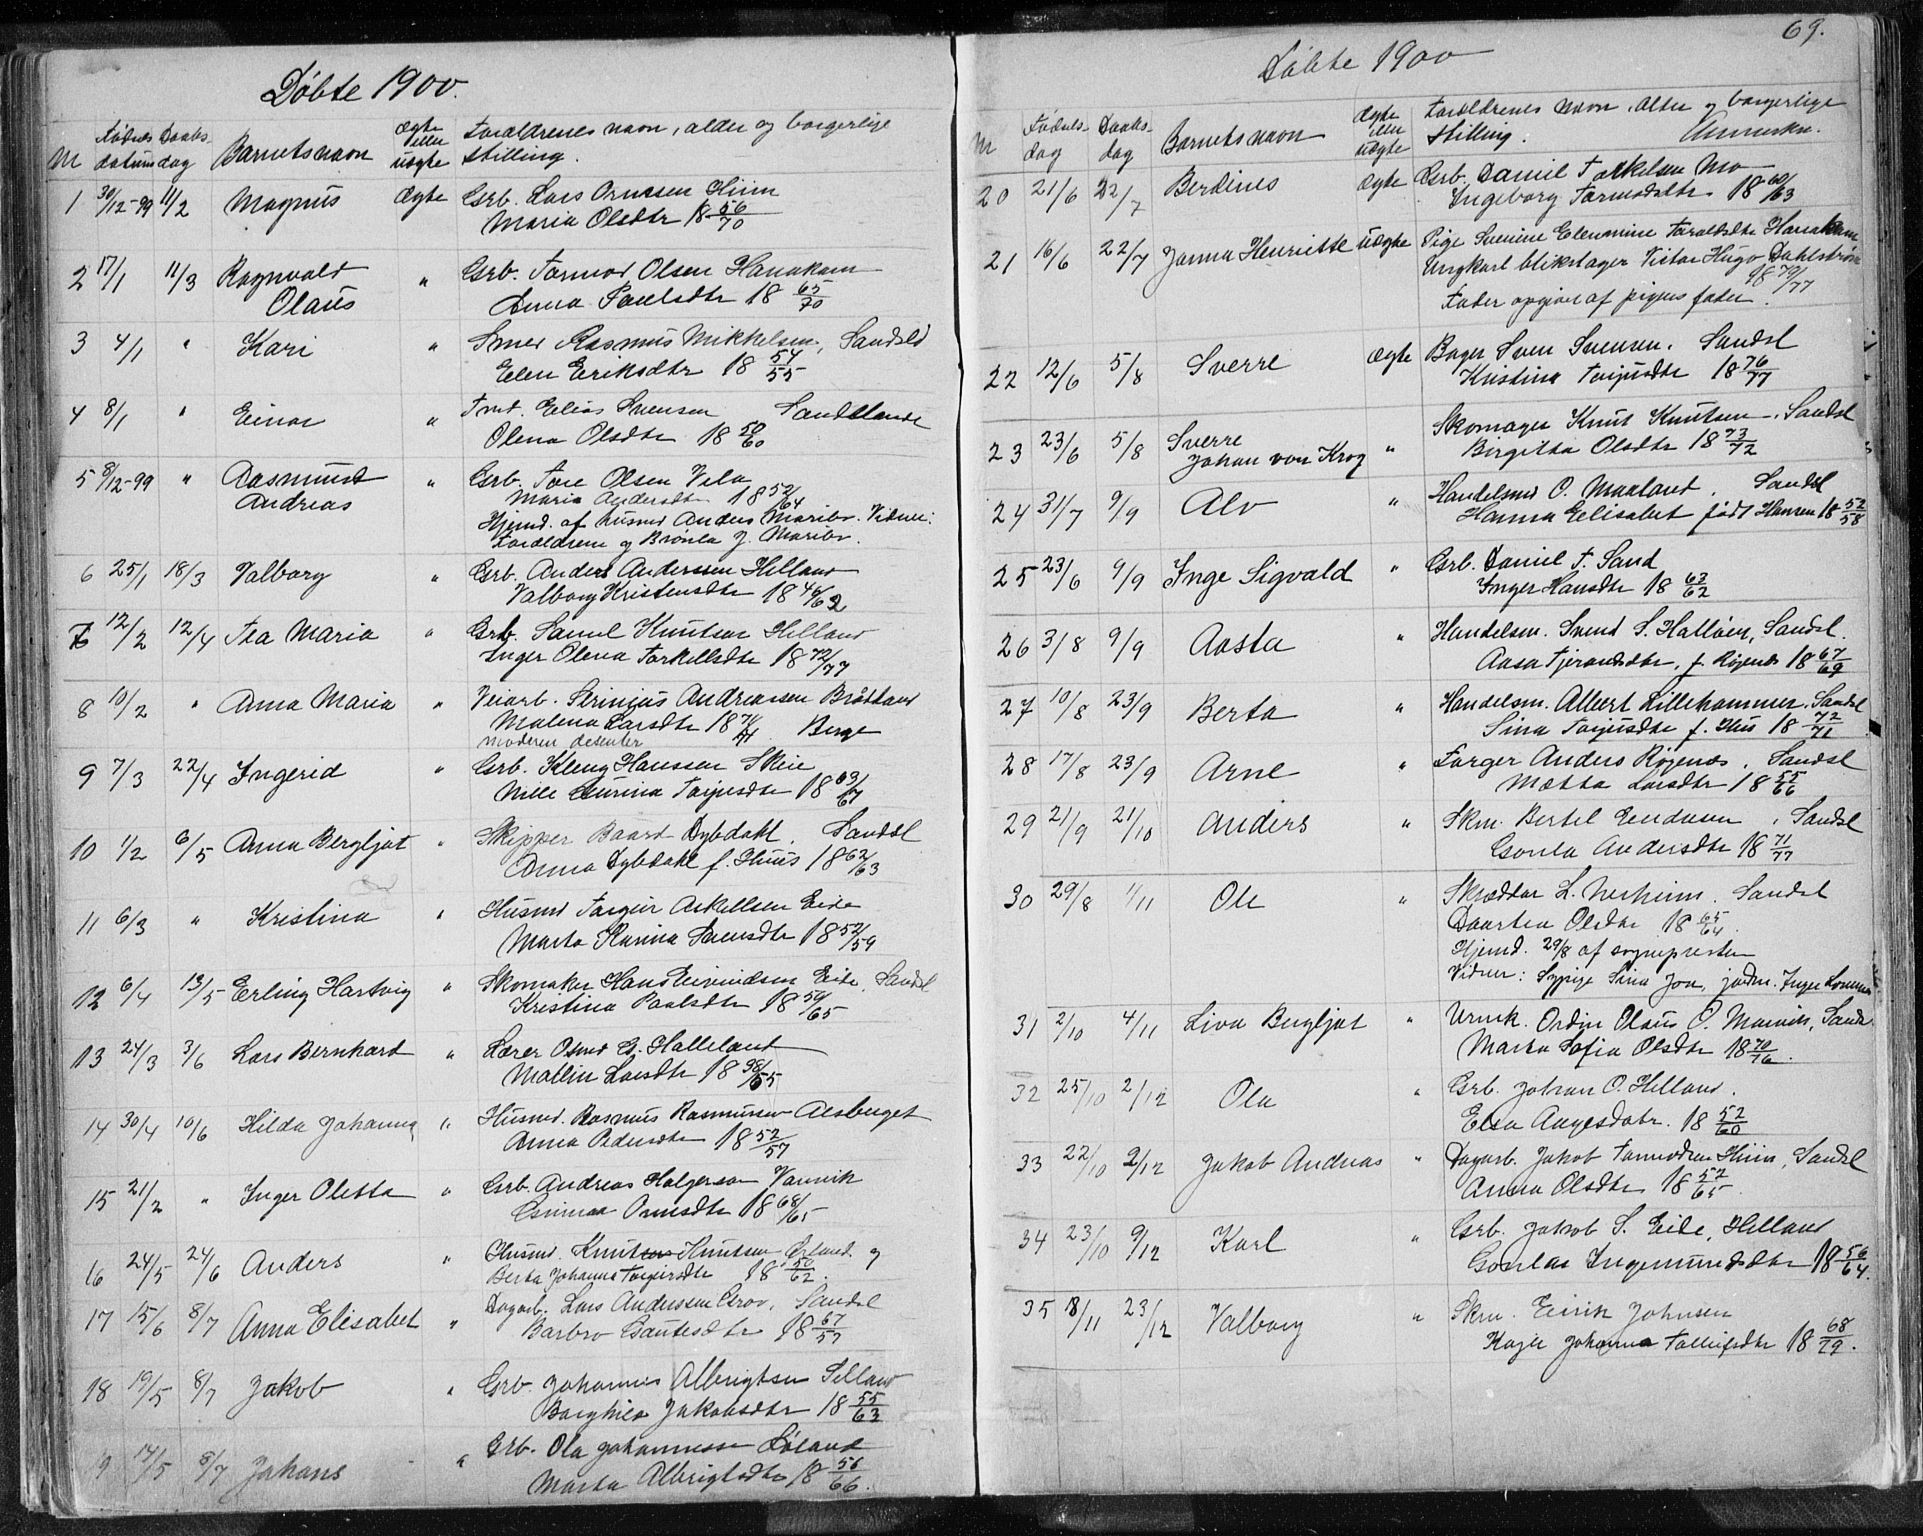 Døbte 1900.
M Fødselsdatum Daabsdag Barnets navn Ægte eller uægte Forældrenes navn, alder og borgerlige stilling.
1 30/12-99 11/2 Magnus Ægte Grb. Lars Ormsen Hiim
Maria Olsdtr 18 56/70
2 17/1 11/3 Ragnvald Olaus " Grb. Tormod Olsen Hanakam
Anna Paulsdtr 18 65/70
3 4/1 " Kari " Smed Rasmus Mikkelsen, Sandsld
Elen Eriksdtr 18 54/55
4 8/1 " Einar " Elias Svensen Sandsland
Olena Olsdtr 18 50/60
5 8/12-99 " Aasmund Andreas " Grb. Tore Olsen Vela
Maria Andersdtr 18 52/64
Hjemd. af husmd Anders Maribo. Vidner:
Forældrene og J. Maribo.
6 25/1 18/3 Valborg " Grb. Anders Anderssen Helland
Valborg Kristensdtr 18 46/62
7 12/2 12/4 Tea Maria " Grb. Samuel Knutsen Helland
Inger Olena Torkellsdtr 18 72/77
8 10/2 " Anna Maria " Veiarb. Serinius Andreassen Bråtland
Malena Larsdtr 18 74/71 Berge
moderen desenter
9 7/3 22/4 Ingerid " Grb. Kleng Hanssen Skeie
Nille Gurina Torjusdtr 18 63/67
10 1/2 6/5 Anna Bergljot " Skipper Baard Dybdahl. Sandsl
Anna Dybdahl f. Huus 18 62/63
11 6/3 " Kristina " Husmd Torgeir Askellsen Eide
Marta Karina Svensdtr 18 52/59
12 6/4 13/5 Erling Hartvig " Skomaker Hans Eivindsen Eide, Sandsl
Kristina Paalsdtr 18 59/65
13 24/3 3/6 Lars Bernhard " Lærer Osmd G. Halleland
Mallin Larsdtr 18 38/55
14 30/4 10/6 Hilda Johanna " Husmd. Rasmus Rasmussen Alsberget
Anna Pedersdtr 18 52/57
15 21/2 " Inger Oletta " Grb. Andreas Holgersen Vannvik
Gurina Ormsdtr 18 68/65
16 24/5 24/6 Anders " Husmd. Knut Knutsen Ørland. og
Berta Johanna Torgeirsdtr 18 50/62.
17 15/6 8/7 Anna Elisabet " Dagarb. Lars Anderssen Grov, Sandsl
Barbro Gautesdtr 18 67/57
18 19/5 8/7 Jakob " Grb. Johannes Albrigtsen Selland
Borghild Jakobsdtr 18 55/63
19 14/5 8/7 Johans " Grb. Ola Johannessen Løland
Marta Albrigtsdtr 18 56/66.
69.
Døbte 1900
M Fødselsdag Daabsdag Barnets navn Ægte eller uægte Forældrenes navn, alder og borgerlige stilling. Anmerkn.
20 21/6 22/7 Berdines Ægte Grb. Daniel Torkelsen Mo
Ingeborg Tormodsdtr 18 60/63
21 16/6 22/7 Janna Henriette uægte Pige Svenine Elenmine Toraldsdtr Hanakam
Ungkarl blikslager Victor Hugo Dahlstrøm
18 79/77
Fader opgivet af pigens fader.
22 12/6 5/8 Sverre Ægte Bager Sven Svensen. Sandsl
Kristina Torjusdtr 18 76/77
23 23/6 5/8 Sverre Johan von Krog " Skomager Knut Knutsen. Sandsl
Birgitha Olsdtr 18 73/72
24 31/7 9/9 Alv " Handelsmd O. Maaland. Sandsl
Hanna Elisabet født Hansen 18 52/58
25 23/6 9/9 Inge Sigvald " Grb. Daniel T. Sand
Inger Hansdtr 18 63/62
26 3/8 9/9 Aasta " Handelsm. Svend S. Halleien, Sandsl.
Aasa Tjerandsdtr, f. Røgenes 18 67/69
27 10/8 23/9 Berta " Handelsm. Albert Lillehammer. Sandsl
Sina Torjusdtr f. Hus 18 72/71
28 17/8 23/9 Arne " Farger Anders Røgenæs. Sandsl
Mætta Larsdtr 18 55/66
29 21/9 21/10 Anders " Skm. Bertel Endresen, Sandsl
Gonla Andersdtr 18 71/77
30 29/8 1/11 Ole " Skrædder L. Nerheim. Sandsl
Daartea Olsdtr 18 65/64.
Hjemd. 29/8 af sognepresten
Vidner: Sypige Sina Joa, jordm. Inger
31 2/10 4/11 Liva Bergljot " Urmk. Ordin Olaus O. Marvik, Sands
Marta Sofia Olsdtr 18 70/76.
32 25/10 2/12 Ola " Grb. Johan O. Helland.
Elsa Aagesdatr. 18 52/60
33 22/10 2/12 Jakob Andreas " Dagarb. Jakob Tormodsen Hiim, Sandsl
Anna Olsdtr 18 52/65.
34 23/10 9/12 Karl " Grb. Jakob S. Eide, Helland
Gonla Ingemundsdtr 18 56/64.
35 8/11 23/12 Valborg " Skm. Eirik Johnsen
Johanna Tolleifsdtr 18 68/79.